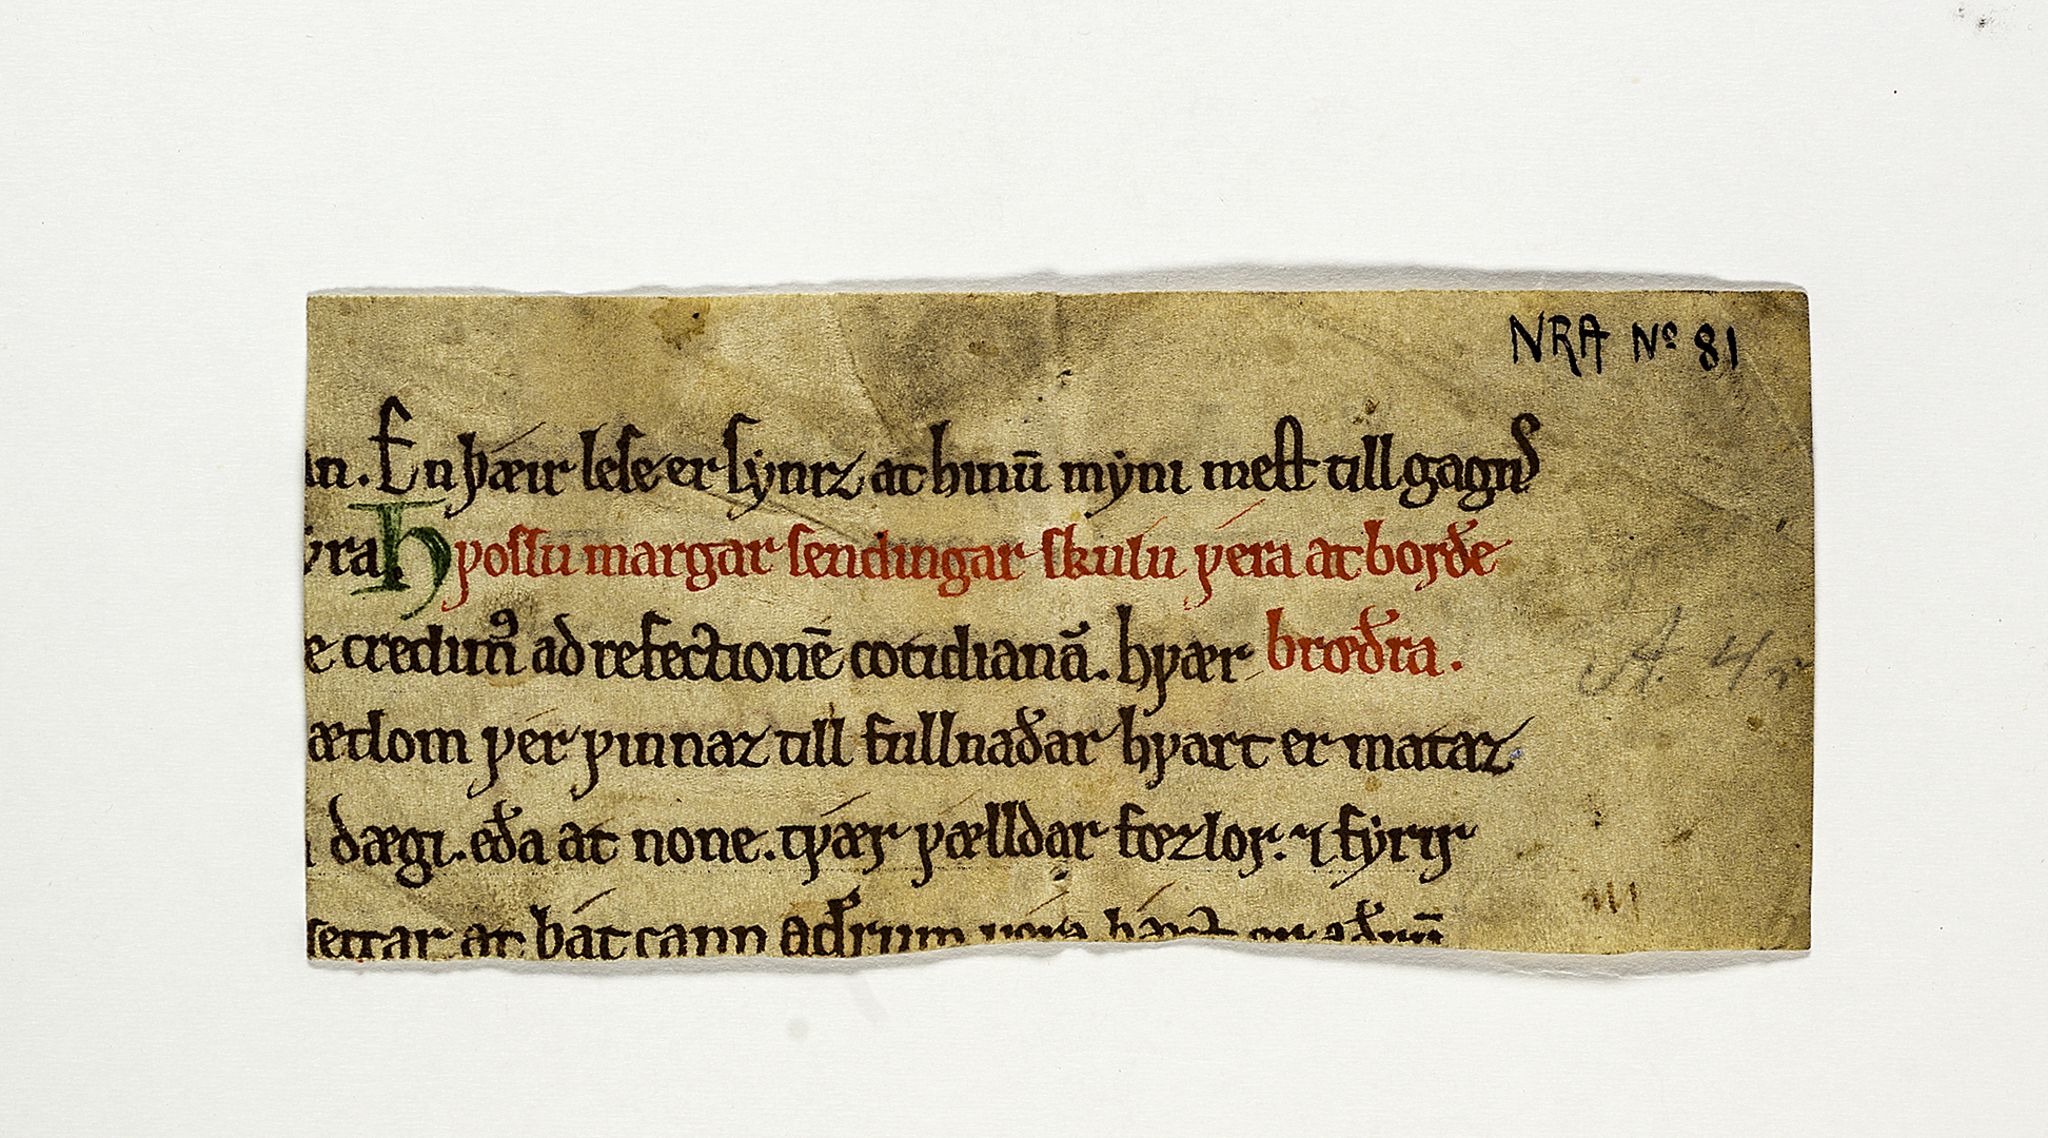 NRA Nº 81
in. En þæir leſe er ſẏnız at hinū mẏnı meſt till gagnſ
ẏra. H ꝩoſſu margar ſendingar ſkulu ꝩera at borðe
e credimꝰ ad refectionē cotidianā. hꝩær brœðra.
ætlom ꝩer ꝩinnaz till fullnaðar hꝩart er mataz
ꝺægı. eða at none. tꝩær ꝩællꝺar fœzlor. ⁊ fẏrır
ſettar at þat cann aðrum